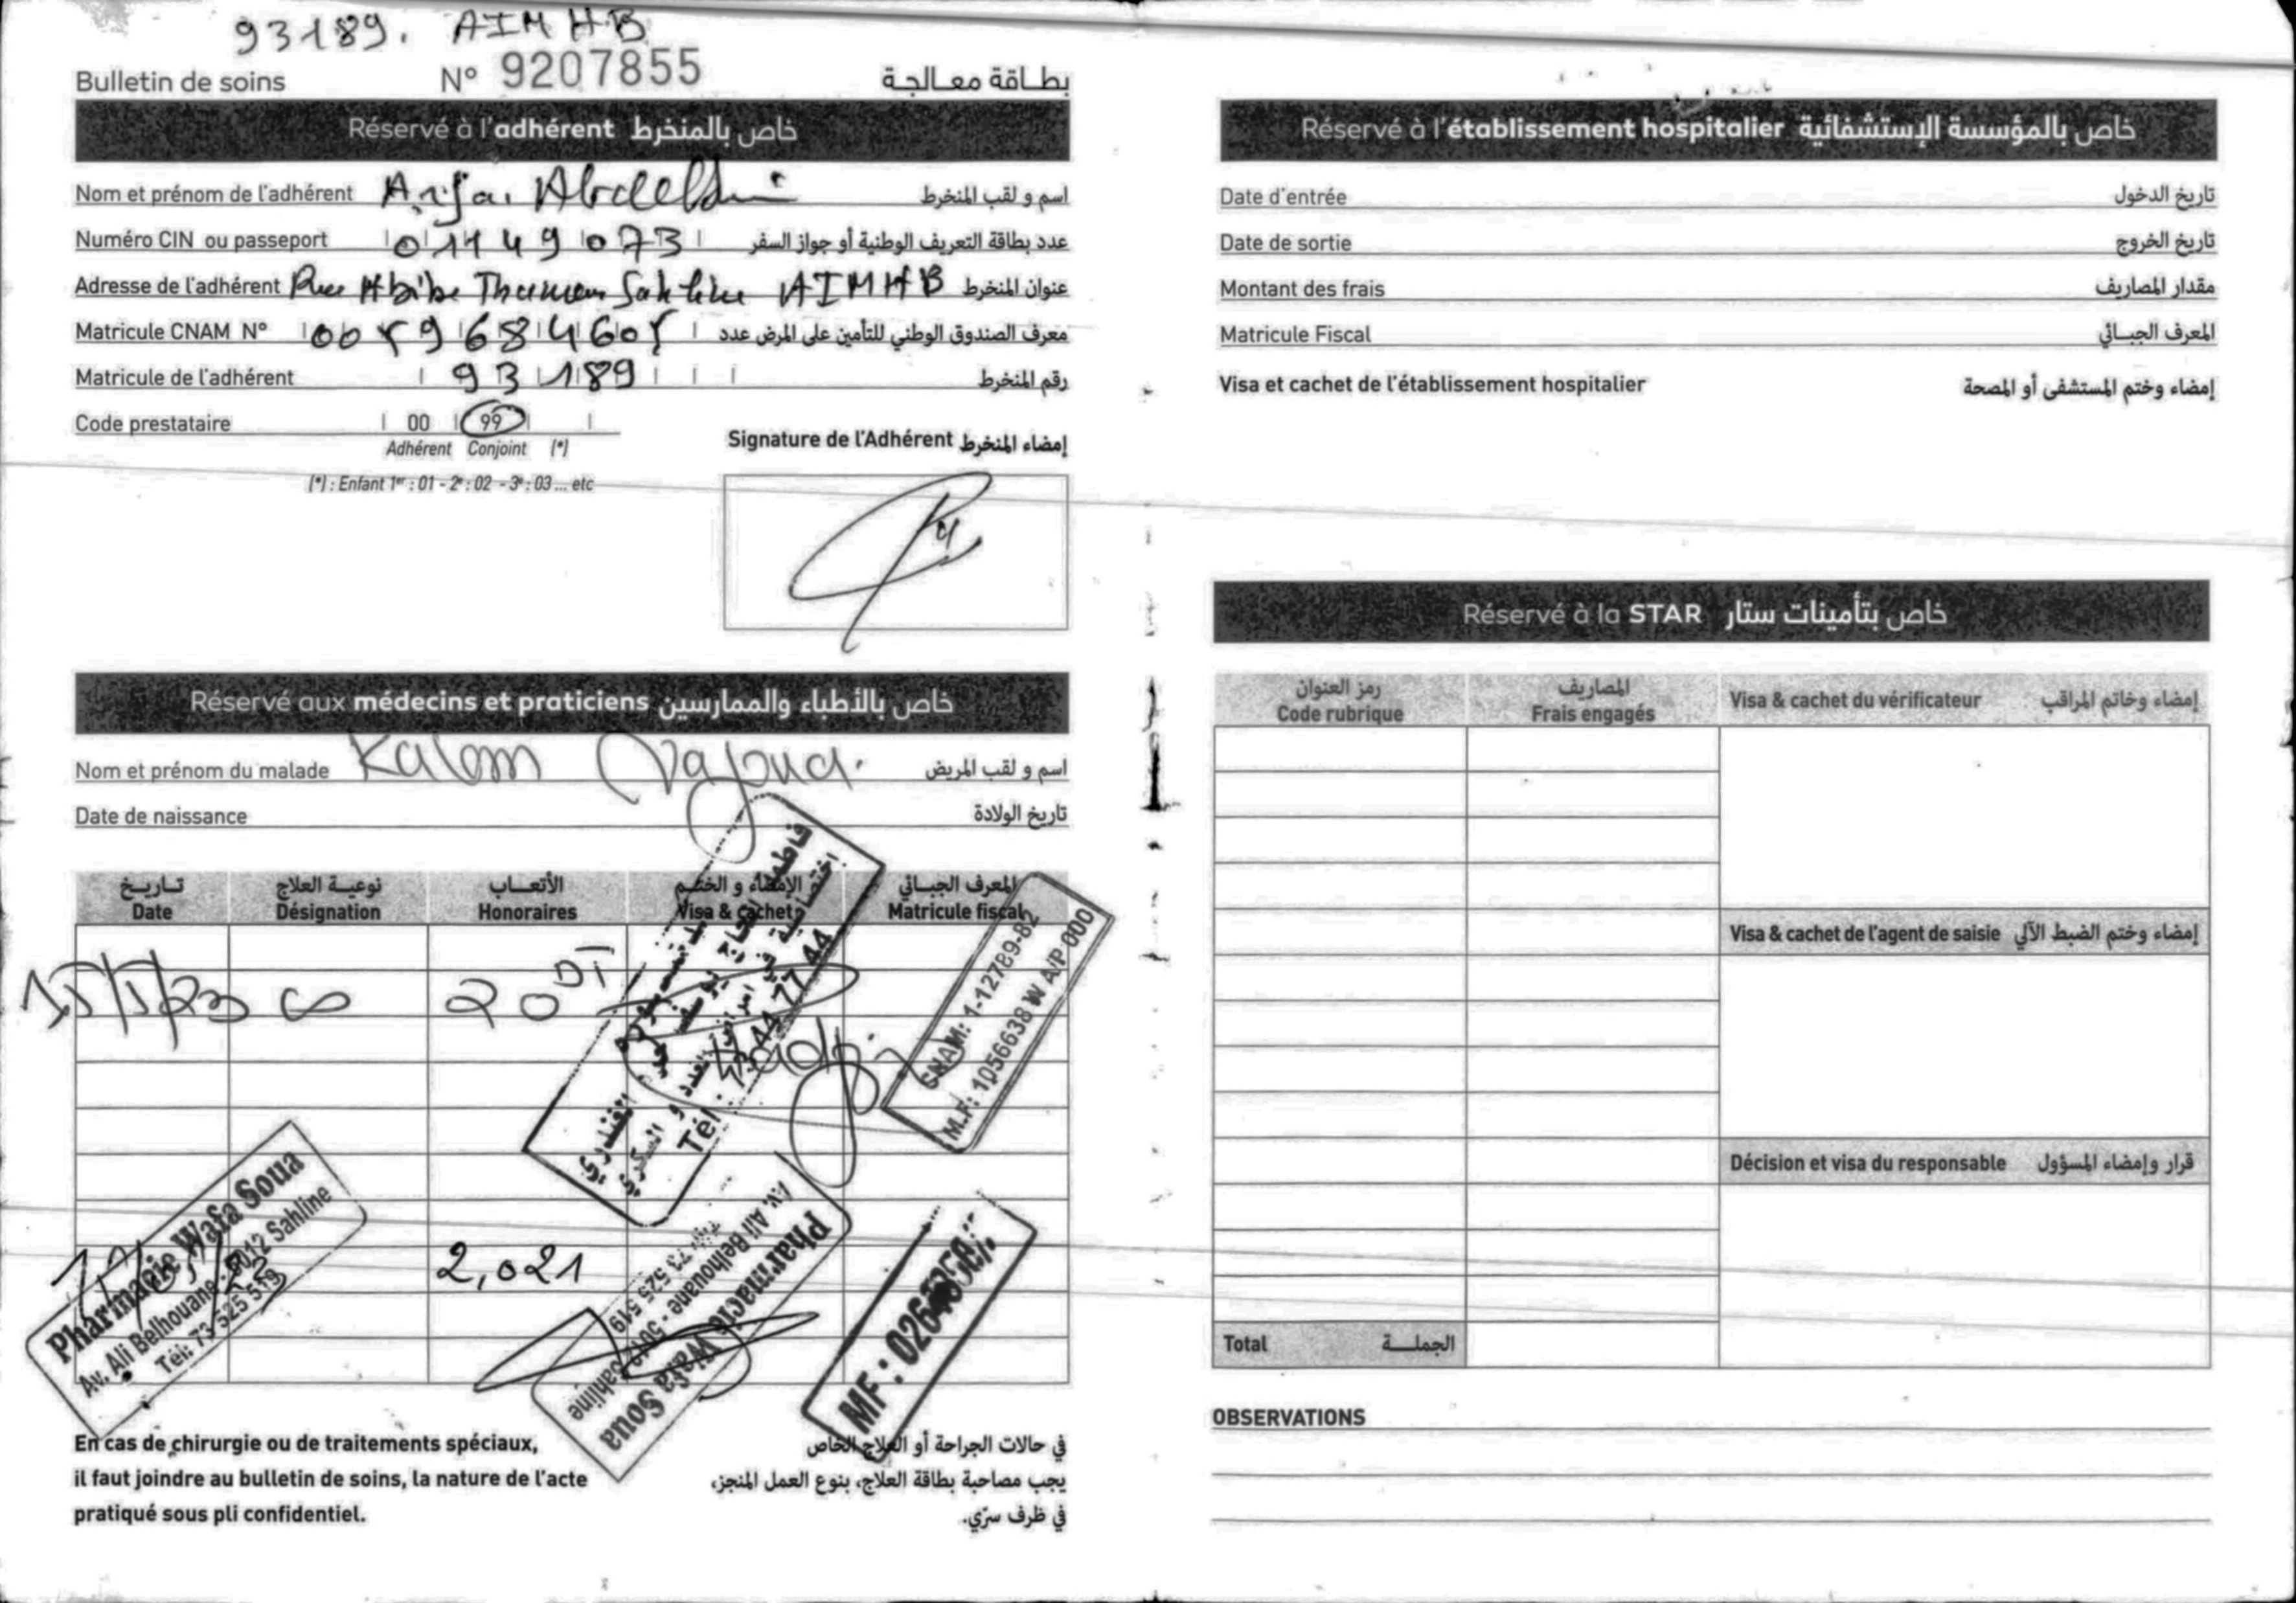 93189. AIM HB
Bulletin de soins N° 9207855 بطاقة معالجة
Réservé à l'adhérent خاص بالمنخرط
Nom et prénom de l'adhérent اسم و لقب المنخرط
Numéro CIN ou passeport 01149073 عدد بطاقة التعريف الوطنية أو جواز السفر
Adresse de l'adhérent Rue Sahline AIMHB عنوان المنخرط
Matricule CNAM N° معرف الصندوق الوطني للتأمين على المرض عدد
Matricule de l'adhérent 93189 رقم المنخرط
Code prestataire 00 99
Adhérent Conjoint (*)
(*) : Enfant 1er : 01 - 2e : 02 - 3e : 03 ... etc
Signature de l'Adhérent إمضاء المنخرط
Réservé aux médecins et praticiens خاص بالأطباء والممارسين
Nom et prénom du malade Kalom اسم و لقب المريض
Date de naissance تاريخ الولادة
تاريخ نوعية العلاج الأتعاب الإمضاء و الختم المعرف الجبائي
Date Désignation Honoraires Visa & cachet Matricule fiscal
15/5/23 20 DT
الغندري
Tél : 73 44 77 44
CNAM: 1-12789-82
M.F: 1056638 W A/P 000
2,021
Pharmacie Wafa Soua
Av. Ali Belhouane - 5012 Sahline
Tél: 73 525 519
Pharmacie Wafa Soua
Av. Ali Belhouane - 5012 Sahline
Tél: 73 525 519
MF :
En cas de chirurgie ou de traitements spéciaux,
il faut joindre au bulletin de soins, la nature de l'acte
pratiqué sous pli confidentiel.
في حالات الجراحة أو العلاج الخاص
يجب مصاحبة بطاقة العلاج، بنوع العمل المنجز،
في ظرف سرّي.
Réservé à l'établissement hospitalier خاص بالمؤسسة الإستشفائية
Date d'entrée تاريخ الدخول
Date de sortie تاريخ الخروج
Montant des frais مقدار المصاريف
Matricule Fiscal المعرف الجبائي
Visa et cachet de l'établissement hospitalier إمضاء وختم المستشفى أو المصحة
Réservé à la STAR خاص بتأمينات ستار
رمز العنوان المصاريف
Code rubrique Frais engagés Visa & cachet du vérificateur إمضاء وخاتم المراقب
Visa & cachet de l'agent de saisie إمضاء وختم الضبط الآلي
Décision et visa du responsable قرار وإمضاء المسؤول
Total الجملة
OBSERVATIONS